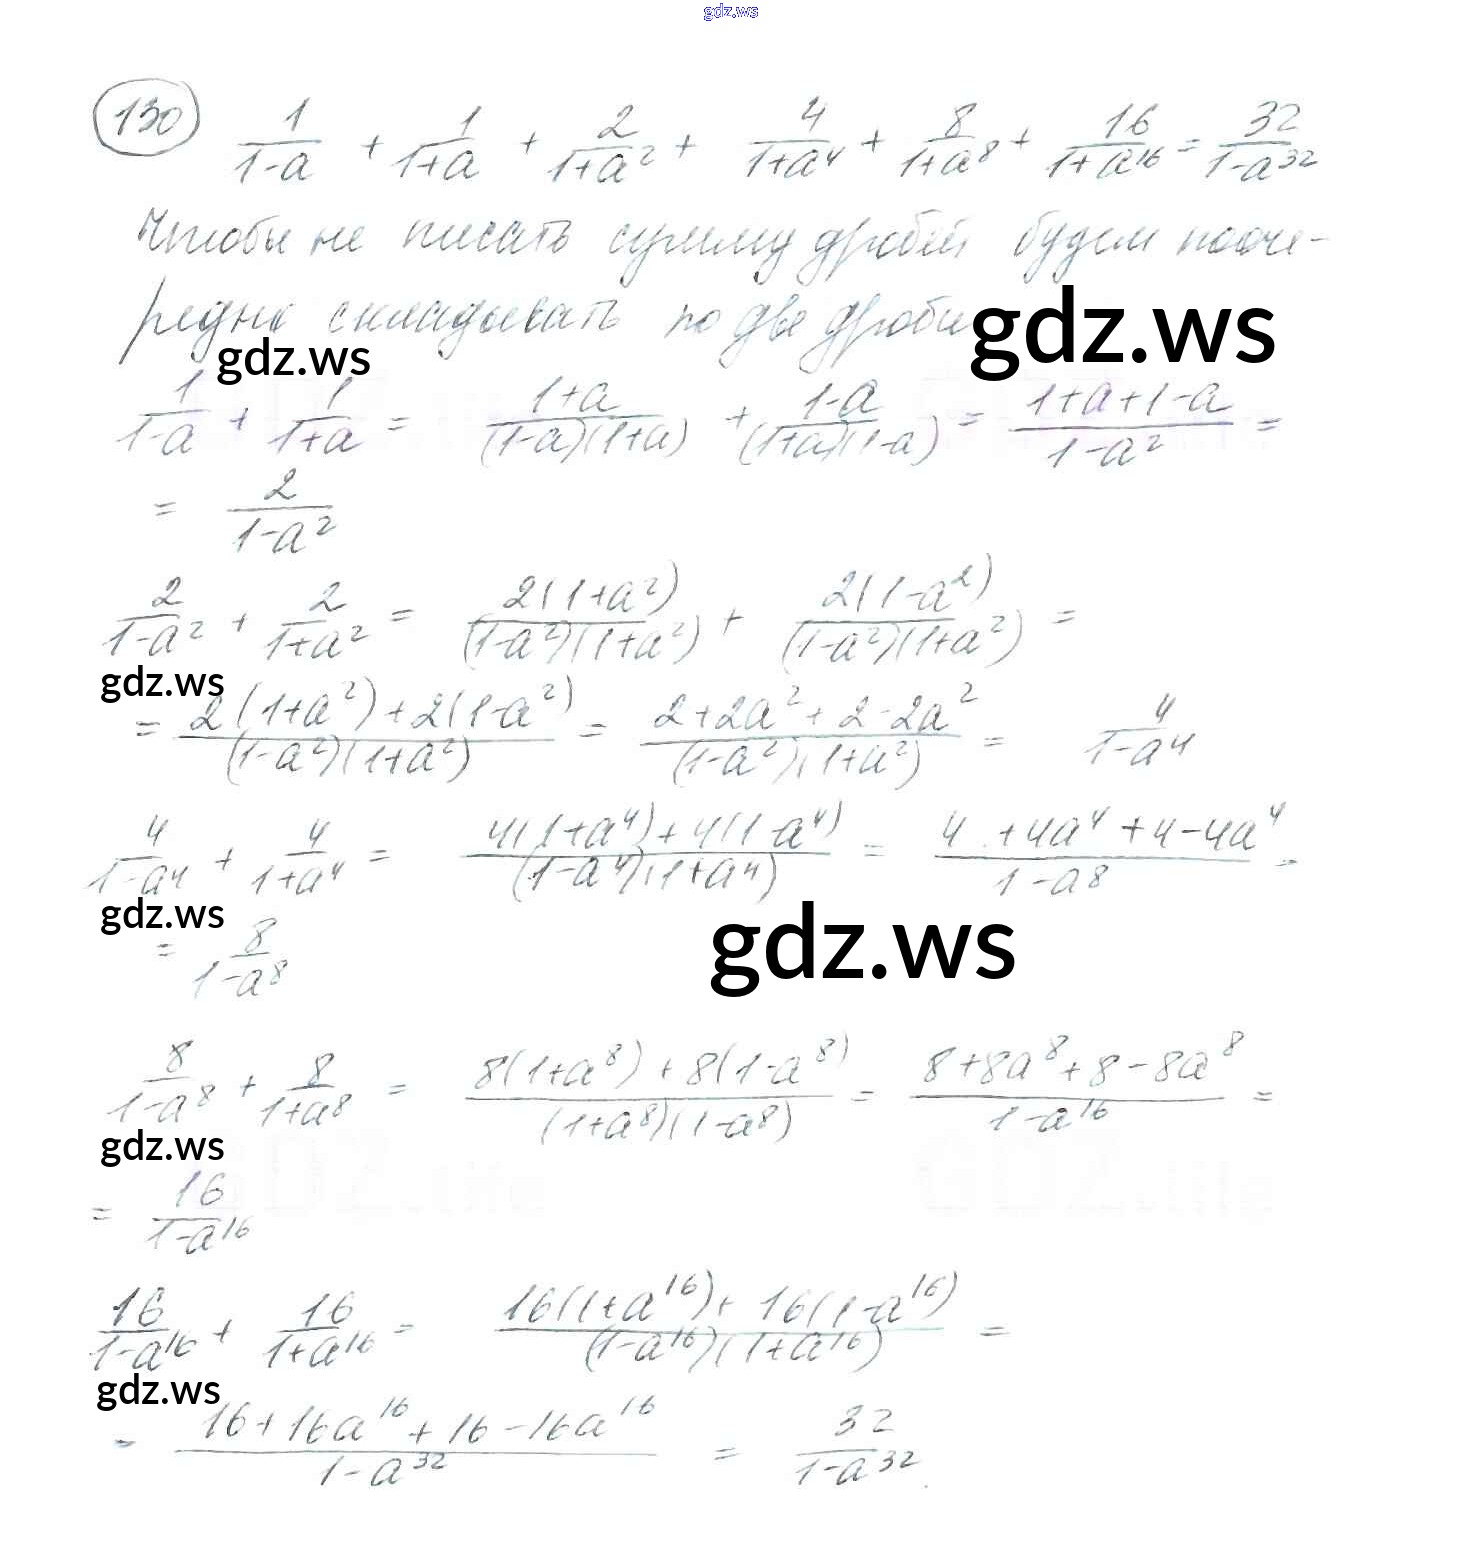 gdz.ws
130 1/(1-a) + 1/(1+a) + 2/(1+a²) + 4/(1+a⁴) + 8/(1+a⁸) + 16/(1+a¹⁶) = 32/(1-a³²)
Чтобы не писать сумму дробей будем пооче-
редно складывать по две дроби
gdz.ws gdz.ws
1/(1-a) + 1/(1+a) = (1+a)/((1-a)(1+a)) + (1-a)/((1+a)(1-a)) = (1+a+1-a)/(1-a²) =
= 2/(1-a²)
2/(1-a²) + 2/(1+a²) = 2(1+a²)/((1-a²)(1+a²)) + 2(1-a²)/((1-a²)(1+a²)) =
gdz.ws
= (2(1+a²)+2(1-a²))/((1-a²)(1+a²)) = (2+2a²+2-2a²)/((1-a²)(1+a²)) = 4/(1-a⁴)
4/(1-a⁴) + 4/(1+a⁴) = (4(1+a⁴)+4(1-a⁴))/((1-a⁴)(1+a⁴)) = (4+4a⁴+4-4a⁴)/(1-a⁸) =
gdz.ws gdz.ws
= 8/(1-a⁸)
8/(1-a⁸) + 8/(1+a⁸) = (8(1+a⁸)+8(1-a⁸))/((1+a⁸)(1-a⁸)) = (8+8a⁸+8-8a⁸)/(1-a¹⁶) =
gdz.ws
= 16/(1-a¹⁶)
16/(1-a¹⁶) + 16/(1+a¹⁶) = (16(1+a¹⁶)+16(1-a¹⁶))/((1-a¹⁶)(1+a¹⁶)) =
gdz.ws
= (16+16a¹⁶+16-16a¹⁶)/(1-a³²) = 32/(1-a³²).